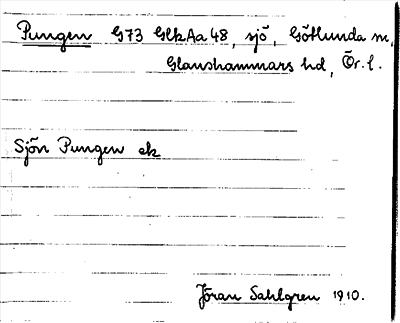 Pungen G73 GlkAa 48, sjö, Götlunda sn,
Glanshammars hd, Ör. l.
Sjön Pungen ek
Jöran Sahlgren 1910.